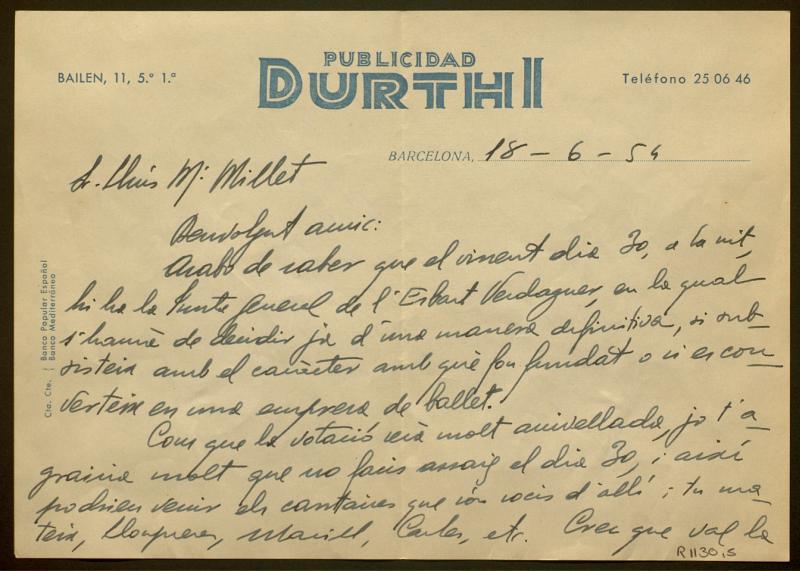 PUBLICIDAD
DURTHI
BAILEN, 11, 5.º 1.ª
Teléfono 25 06 46
BARCELONA, 18 - 6 - 54
Sr. Lluis Mª Millet
Benvolgut amic:
Acabo de saber que el vinent dia 30, a la nit,
hi ha la Junta General de l'Esbart Verdaguer, en la qual
s'haurà de decidir ja d'una manera definitiva, si sub-
sisteix amb el caràcter amb què fou fundat o si es con-
verteix en una empresa de ballet.
Com que la votació serà molt anivellada, jo t'a-
grairia molt que no facis assaig el dia 30, i així
podrien venir els cantaires que són socis d'allí; tu ma-
teix, Llongueres, Martell, Carles, etc. Crec que val la
Cta. Cte. Banco Popular Español
Banco Mediterráneo
R 1130,5